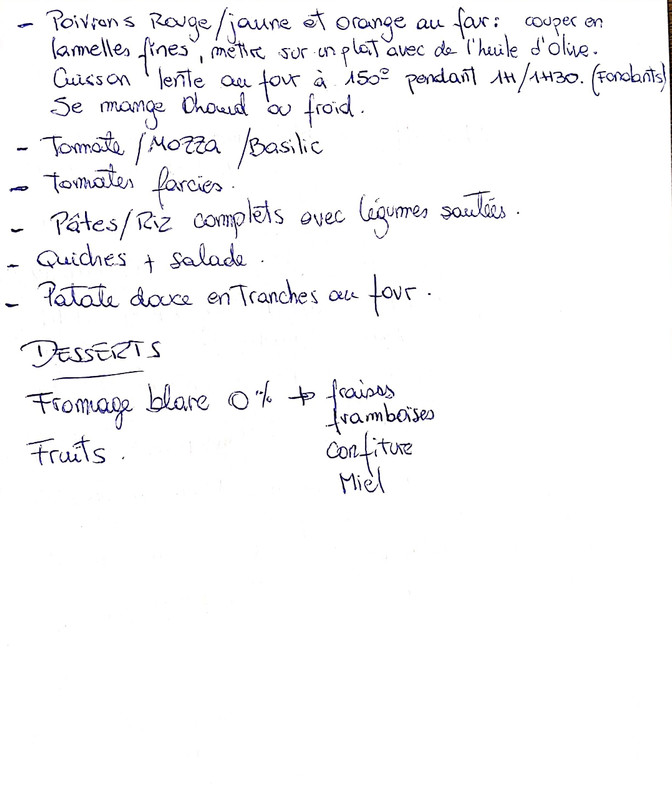 - Poivrons Rouge/jaune et orange au four: couper en
lamelles fines, mettre sur un plat avec de l'huile d'olive.
Cuisson lente au four à 150° pendant 1H/1H30. (Fondants)
Se mange chaud ou froid.
- Tomate/Mozza/Basilic
- Tomates farcies.
- Pâtes/Riz complets avec légumes sautées.
- Quiches + salade.
- Patate douce en Tranches au four.
DESSERTS
Fromage blanc 0% + fraises
framboises
Fruits. Confiture
Miel